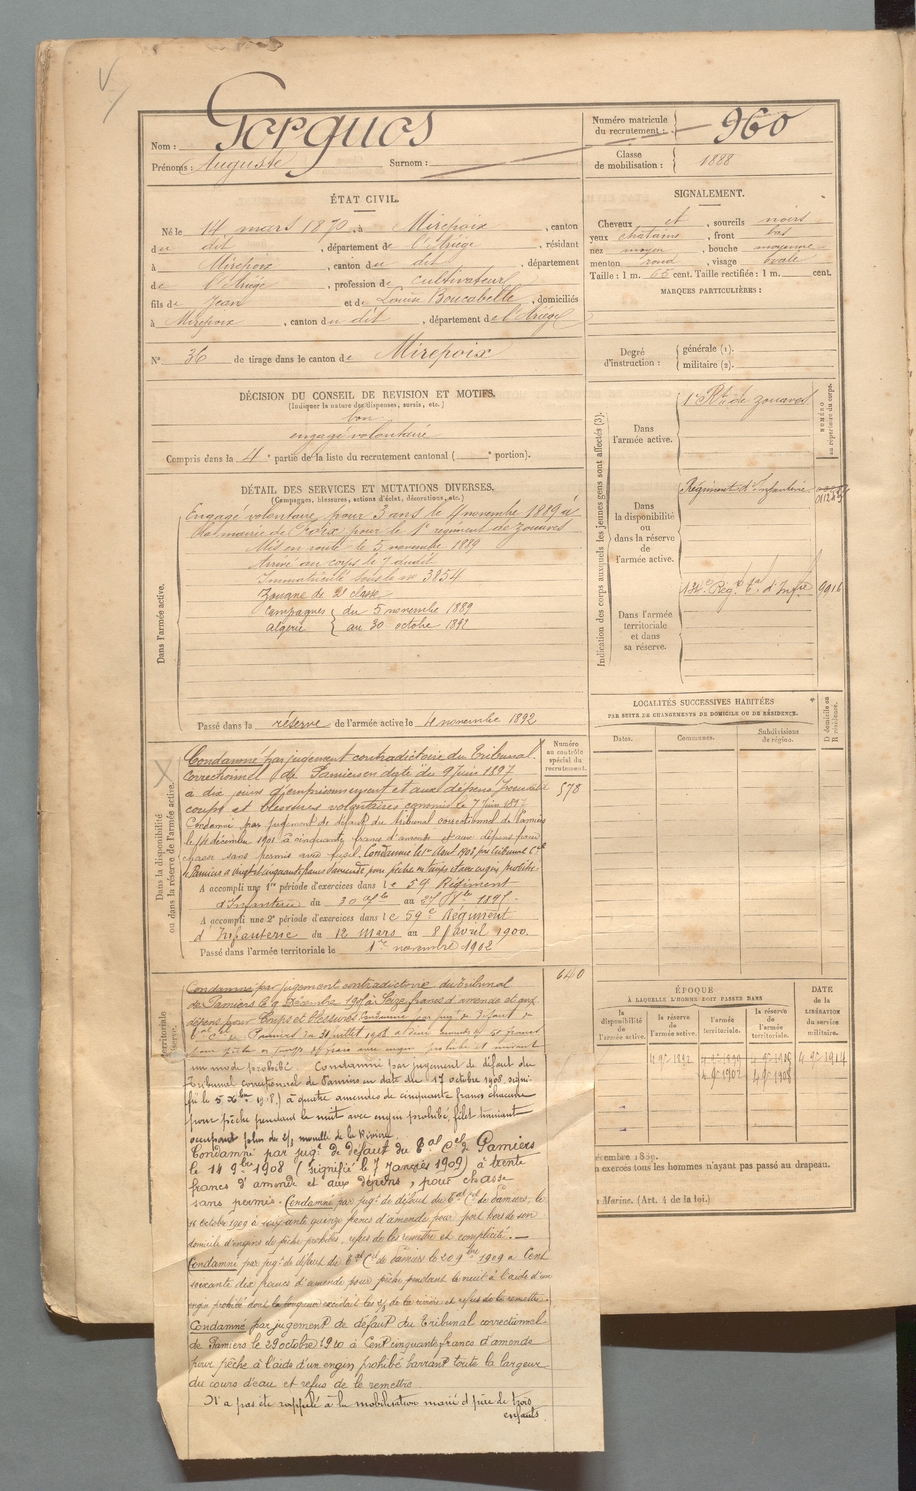 Nom : Gorguos
Prénoms : Auguste Surnom :
Numéro matricule du recrutement : 960
Classe de mobilisation : 1888
ÉTAT CIVIL.
Né le 14 mars 1870, à Mirepoix, canton
du dit, département de l'Ariège, résidant
à Mirepoix, canton du dit, département
de l'Ariège, profession de cultivateur
fils de Jean et de Louise Boucabelle, domiciliés
à Mirepoix, canton du dit, département de l'Ariège
N° 36 de tirage dans le canton de Mirepoix
SIGNALEMENT.
Cheveux et, sourcils noirs
yeux chatains, front bas
nez moyen, bouche moyenne
menton rond, visage ovale
Taille : 1 m. 65 cent. Taille rectifiée : 1 m. cent.
MARQUES PARTICULIÈRES :
Degré d'instruction : générale (1).
militaire (2).
DÉCISION DU CONSEIL DE REVISION ET MOTIFS.
(Indiquer la nature des dispenses, sursis, etc.)
bon
engagé volontaire
Compris dans la 4e partie de la liste du recrutement cantonal ( e portion).
DÉTAIL DES SERVICES ET MUTATIONS DIVERSES.
(Campagnes, blessures, actions d'éclat, décorations, etc.)
Dans l'armée active.
Engagé volontaire pour 3 ans le 4 novembre 1889 à
la mairie de pour le 1er régiment de Zouaves
Mis en route le 5 novembre 1889
Arrivé au corps le 7 dudit
Immatriculé sous le no 3854
Zouave de 2e classe
Campagnes du 5 novembre 1889
Algérie au 30 octobre 1892
Passé dans la réserve de l'armée active le 4 novembre 1892
Indication des corps auxquels les jeunes gens sont affectés (3).
NUMÉRO au répertoire du corps.
Dans l'armée active.
1er Rt de zouaves
Dans la disponibilité ou dans la réserve de l'armée active.
Régiment d'Infanterie
Dans l'armée territoriale et dans sa réserve.
Régt d'Infie 9916
LOCALITÉS SUCCESSIVES HABITÉES
PAR SUITE DE CHANGEMENTS DE DOMICILE OU DE RÉSIDENCE.
Dates. Communes. Subdivisions de région. D domicile ou R résidence.
Dans la disponibilité ou dans la réserve de l'armée active.
Numéro au contrôle spécial du recrutement.
578
Condamné par jugement contradictoire du Tribunal
correctionnel de Pamiers en date du 9 juin 1897
a dix jours d'emprisonnement et aux dépens pour
coups et blessures volontaires commis le 7 Juin 1897
Condamné par jugement de défaut du tribunal correctionnel de Pamiers
le 14 décembre 1901 à cinquante francs d'amende et aux dépens pour
chasse sans permis avec fusil. Condamné le 1er Août 1902 par tribunal Cel
de Pamiers à francs d'amende pour pêche en temps et avec engins prohibés
A accompli une 1re période d'exercices dans le 59e Régiment
d'Infanterie du 30 au 27
A accompli une 2e période d'exercices dans le 59e Régiment
d'Infanterie du 12 Mars au 8 avril 1900.
Passé dans l'armée territoriale le 1er novembre 1902
640
Condamné par jugement contradictoire du Tribunal
de Pamiers le 9 Décembre à Seize francs d'amende et aux
dépens pour Coups et blessures. Condamné par jugt de défaut du
bal Cel de Pamiers du 31 juillet 1908 amende de 50 francs
pour pêche en temps de avec engin prohibé et suivant
un mode prohibé. Condamné par jugement de défaut du
Tribunal correctionnel de Pamiers en date du 17 octobre 1908, signi-
fié le 5 Xbre 1908) à quatre amendes de cinquante francs chacune
pour pêche pendant la nuit avec engin prohibé, filet trainant
occupant plus des 2/3 mouillé de la Rivière.
Condamné par jugt de défaut du Bal Cel de Pamiers
le 14 9bre 1908 (signifié le 7 Janvier 1909) à trente
francs d'amende et aux dépens, pour chasse
sans permis. Condamné par jugt de défaut du Bal Cel de Pamiers, le
16 octobre 1909 à soixante quinze francs d'amende pour port hors de son
domicile d'engins de pêche prohibés, refus de les remettre et complicité.
Condamné par jugt de défaut du Bal Cel de Pamiers le 20 9bre 1909 à Cent
soixante dix francs d'amende pour pêche pendant la nuit à l'aide d'un
engin prohibé dont la longueur excédait les 2/3 de la rivière et refus de le remettre.
Condamné par jugement de défaut du Tribunal correctionnel
de Pamiers le 29 octobre 1910 à Cent cinquante francs d'amende
pour pêche à l'aide d'un engin prohibé barrant toute la largeur
du cours d'eau et refus de le remettre.
N'a pas été rappelé à la mobilisation marié et père de trois
enfants.
ÉPOQUE
À LAQUELLE L'HOMME DOIT PASSER DANS
DATE de la LIBÉRATION du service militaire.
la disponibilité de l'armée active. la réserve de l'armée active. l'armée territoriale. la réserve de l'armée territoriale.
4 9bre 1892 4 9bre 1914
4 9bre 1902 4 9bre 1908
n exercés tous les hommes n'ayant pas passé au drapeau.
Marine. (Art. 4 de la loi.)